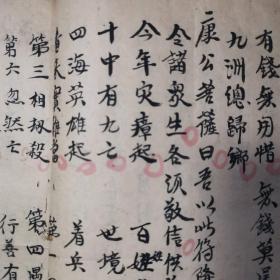 有錢無用惜 無錢莫
九洲總歸鄉
康公菩薩曰吾以此符降
令諸衆生各須敬信供
今年灾瘴起 百姓
十中有九亡 世境
四海英雄起 着兵
第三相杀殺 第四遇
第六忽然亡 行善有